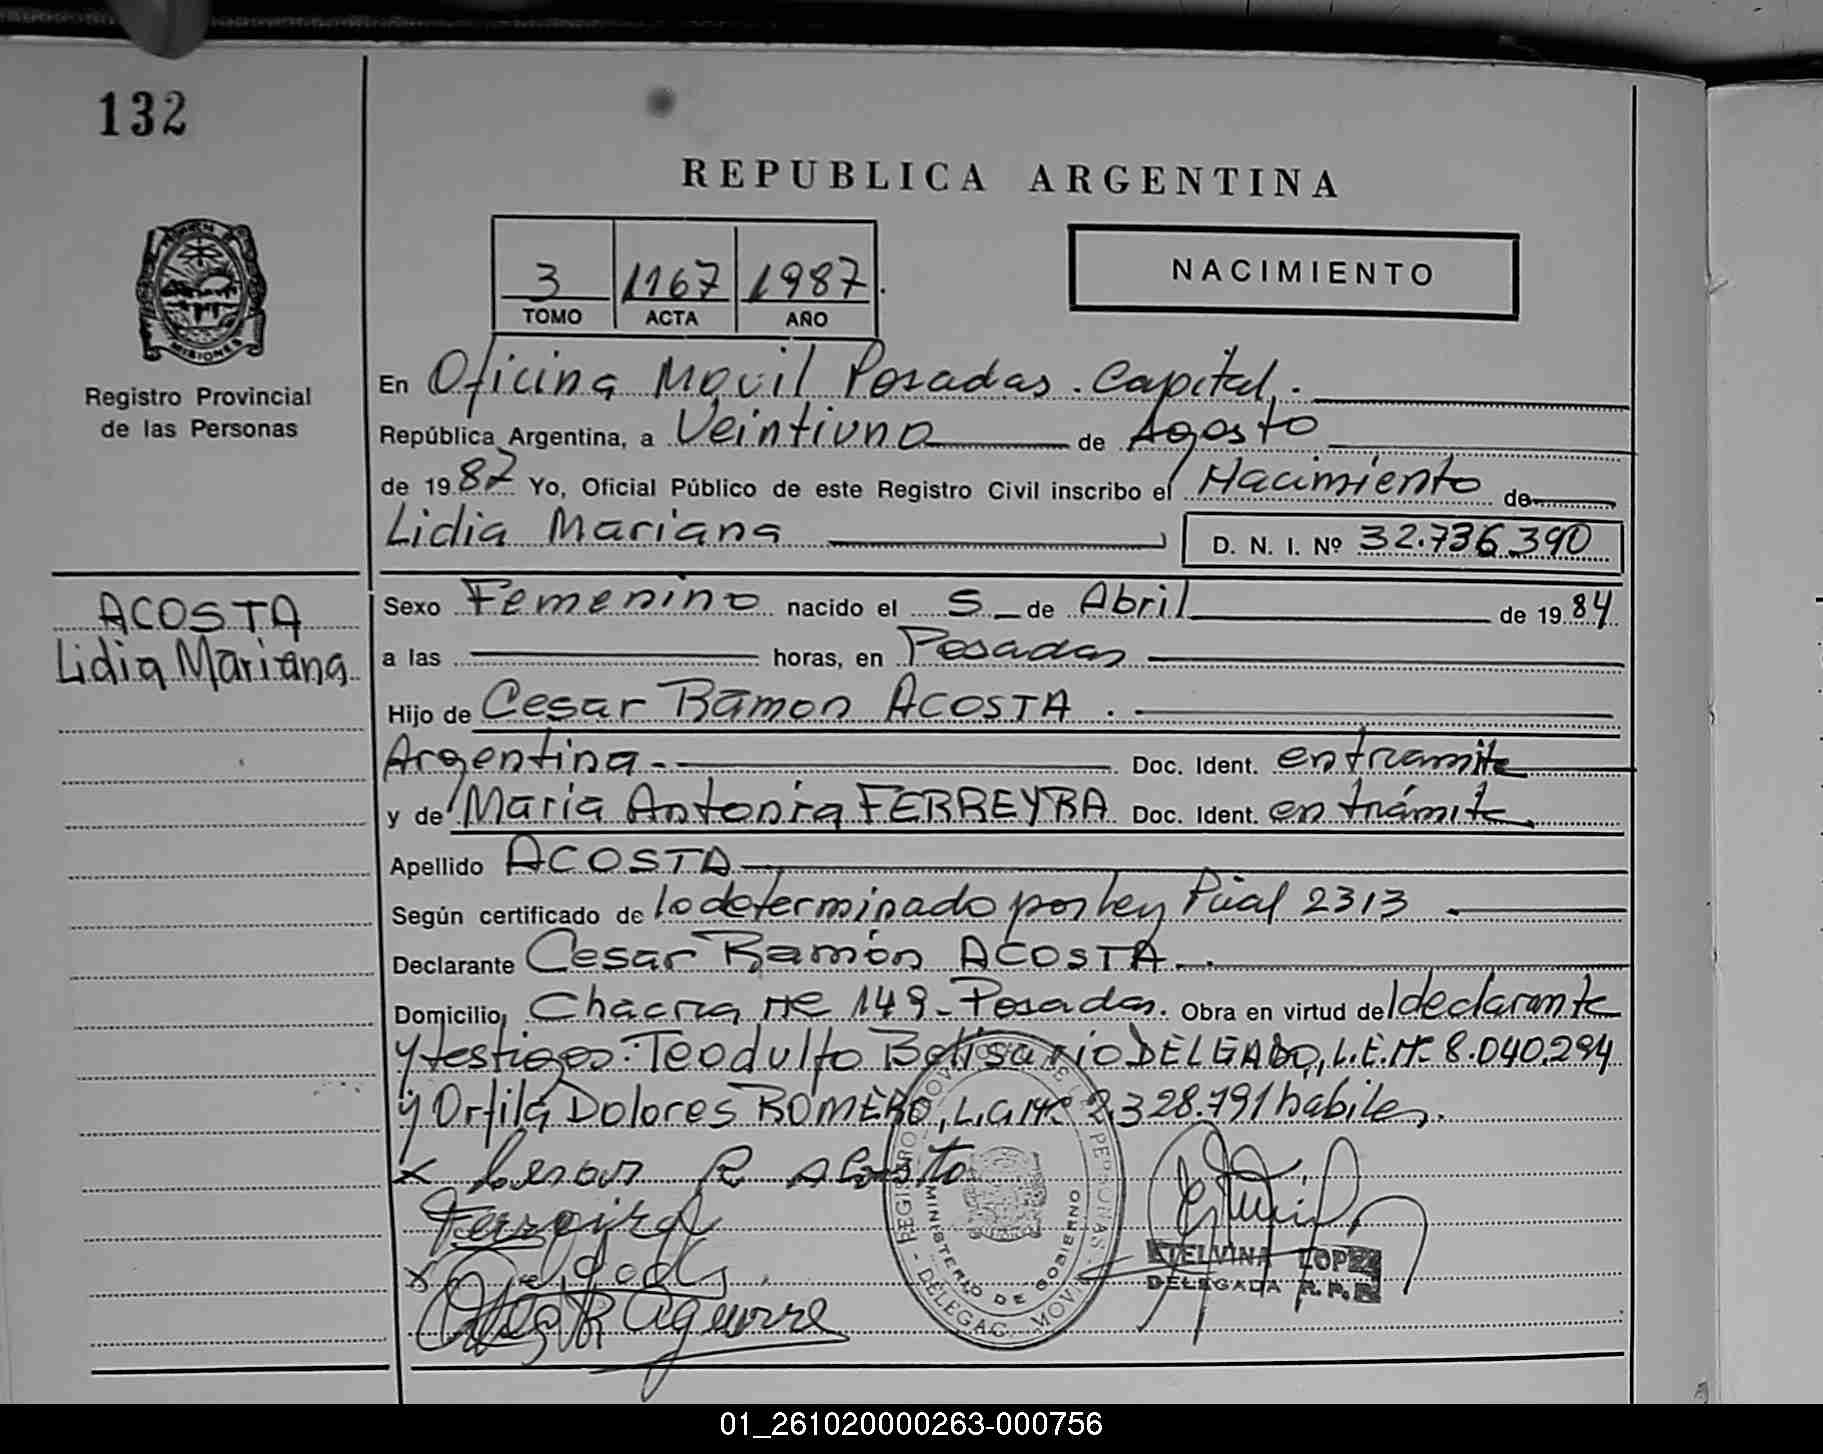 132
REPUBLICA ARGENTINA
3 1167 1987
TOMO ACTA AÑO
NACIMIENTO
MISIONES
Registro Provincial
de las Personas
En Oficina Movil Posadas. Capital.
República Argentina, a Veintiuno de Agosto
de 1987 Yo, Oficial Público de este Registro Civil inscribo el Nacimiento de
Lidia Mariana D. N. I. Nº 32.736.390
ACOSTA
Lidia Mariana
Sexo Femenino nacido el 5 de Abril de 1984
a las horas, en Posadas
Hijo de Cesar Ramon ACOSTA.
Argentina Doc. Ident. en tramite
y de Maria Antonia FERREYRA Doc. Ident. en trámite
Apellido ACOSTA
Según certificado de lo determinado por Ley Pcial 2313
Declarante Cesar Ramón ACOSTA
Domicilio Chacra Nº 149-Posadas. Obra en virtud del declarante
y testigos: Teodulfo Belisario DELGADO, L.E.Nº 8.040.294
y Orfila Dolores ROMERO, L.C.Nº 2.328.791 habiles.
x Cesar R Acosta
Ferreyra
x
Aguirre
REGISTRO DE LAS PERSONAS - DELEGAC. MOVIL
MINISTERIO DE GOBIERNO
ETELVINA LOPEZ
DELEGADA R.P.P.
01_261020000263-000756